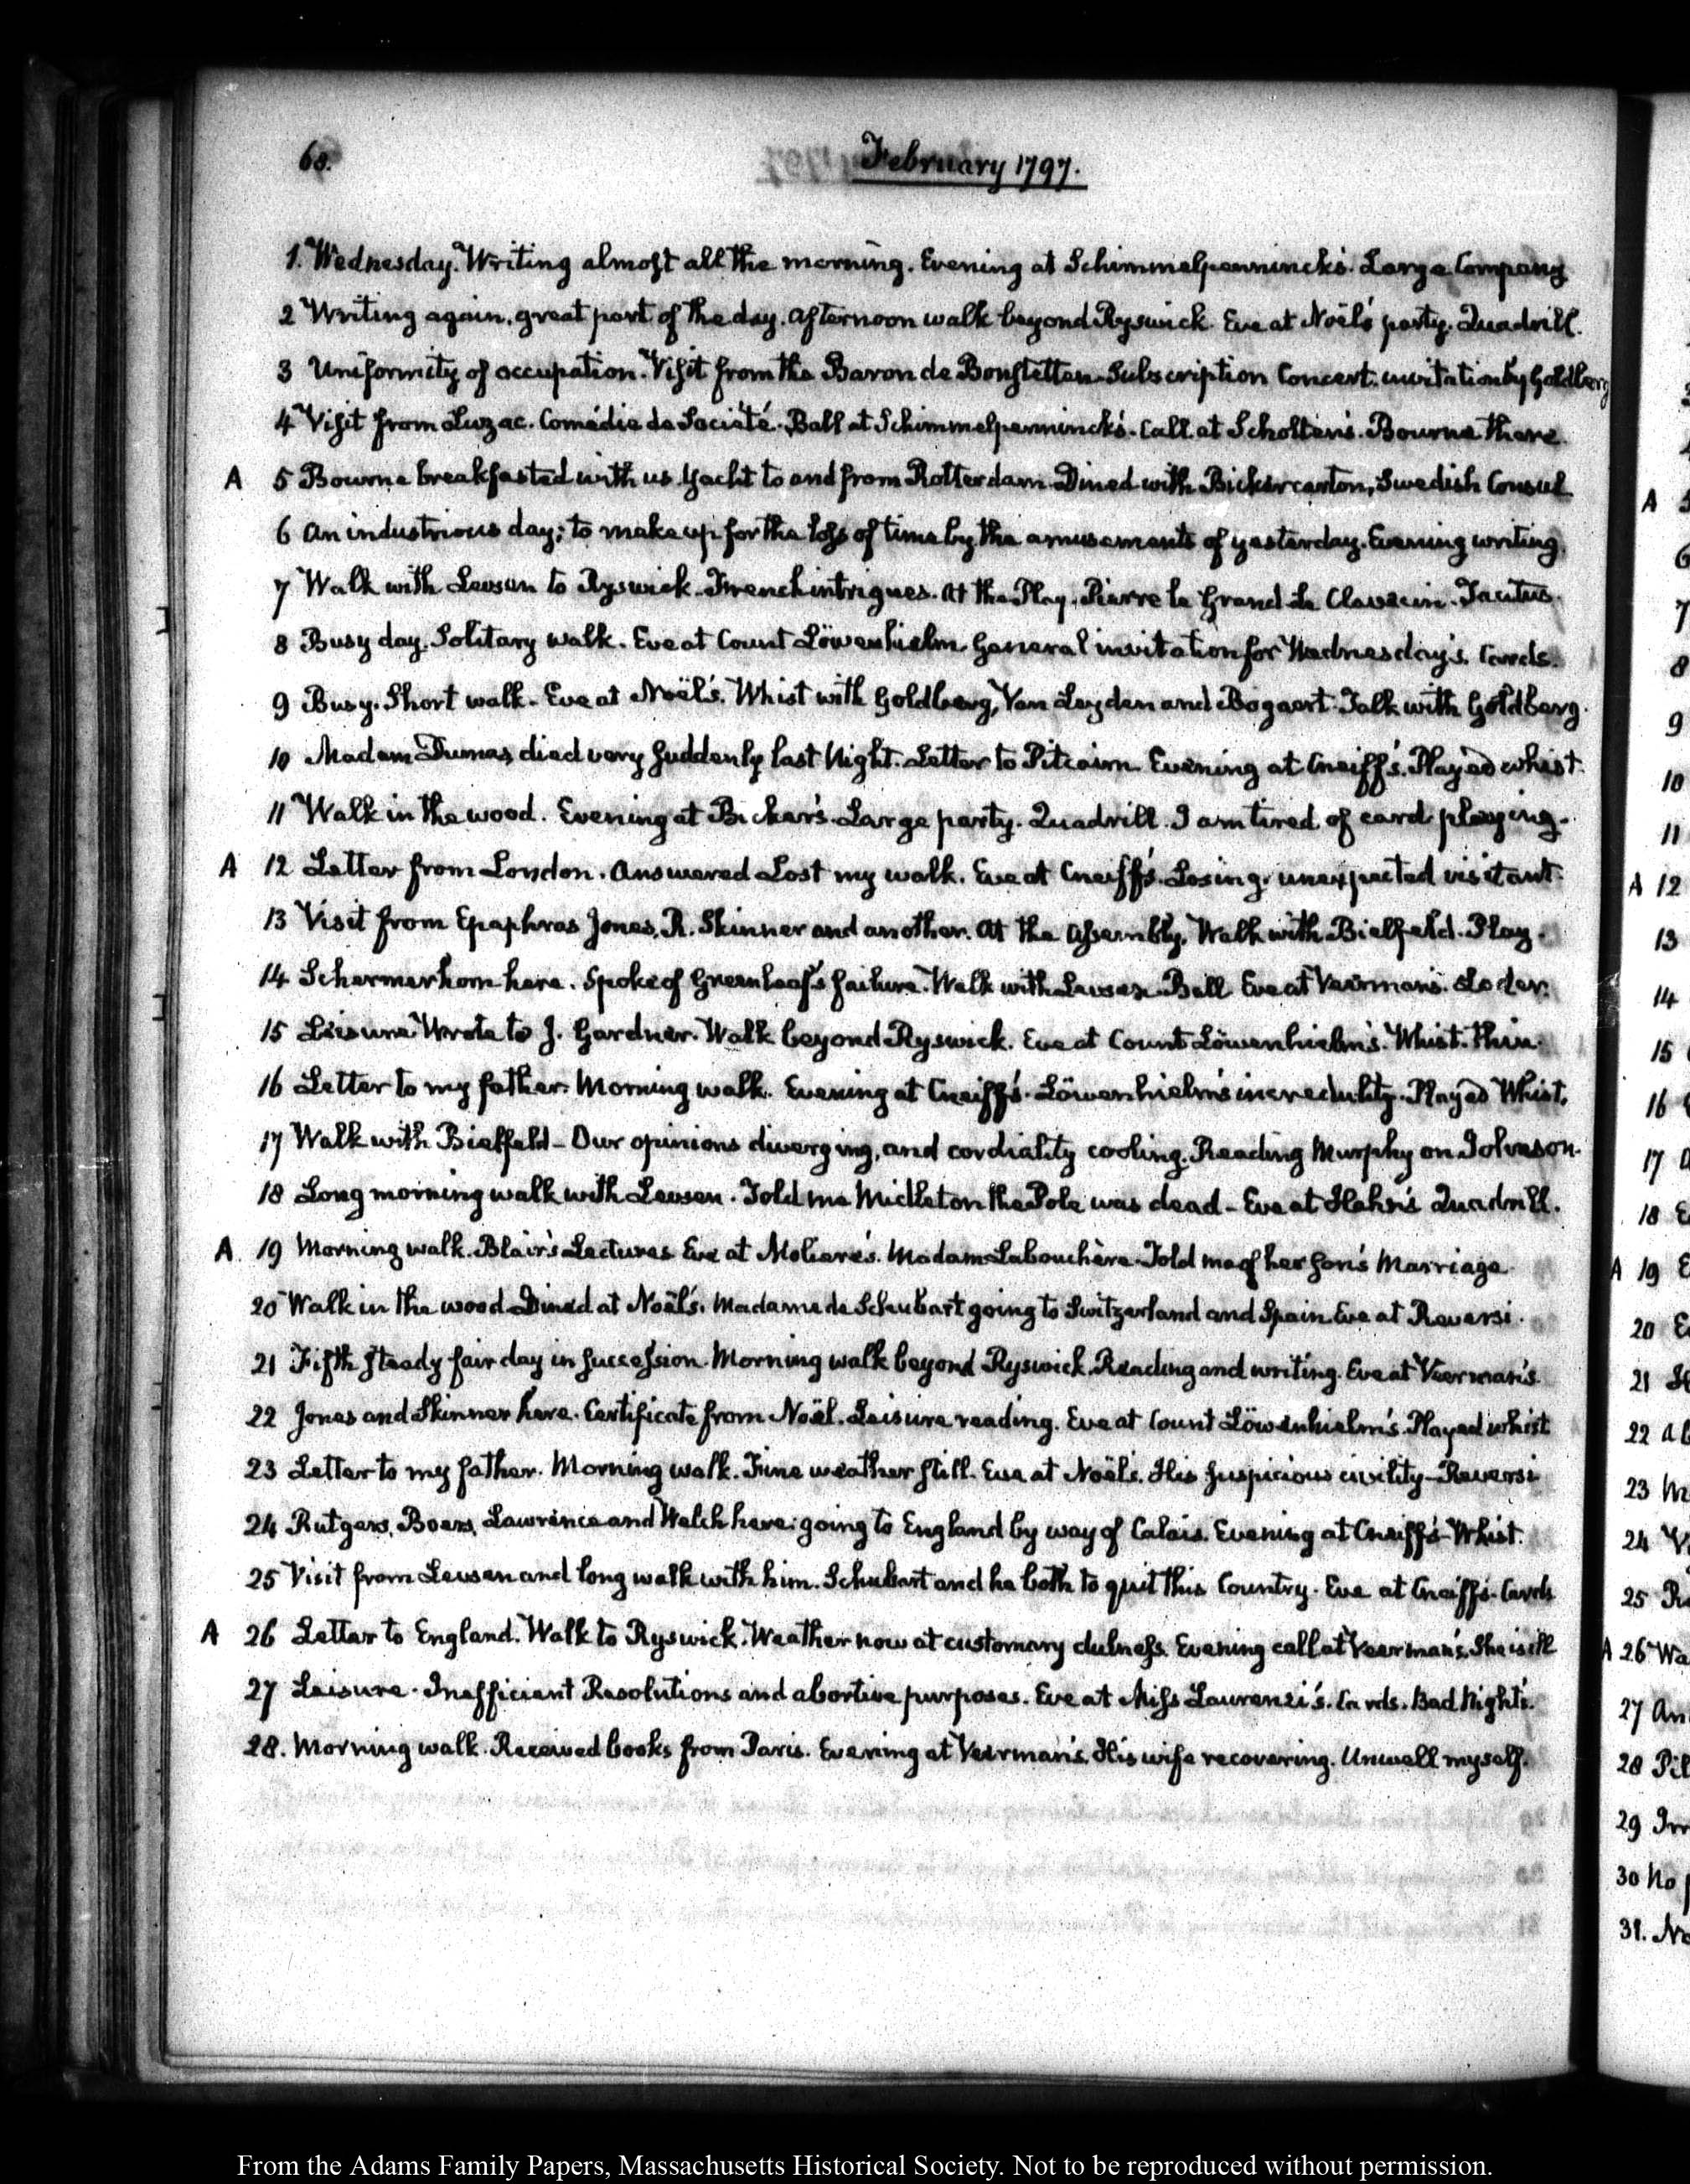 68.
February 1797.
1. Wednesday. Writing almost all the morning. Evening at Schimmelpenninck's. Large Company
2 Writing again, great part of the day. Afternoon walk beyond Ryswick. Eve at Noël's party. Quadrill.
3 Uniformity of occupation. Visit from the Baron de Bonstetten. Subscription Concert. invitation by Goldberg
4 Visit from Luzac. Comédie de Societé. Ball at Schimmelpenninck's. Call at Scholten's. Bourne there.
A 5 Bourne breakfasted with us. Yacht to and from Rotterdam. Dined with Bickercarton, Swedish Consul
6 An industrious day; to make up for the loss of time by the amusements of yesterday. Evening writing.
7 Walk with Levsen to Ryswick. French intrigues. At the Play, Pierre le Grand. Le Clavecin. Tacitus.
8 Busy day. Solitary walk. Eve at Count Löwenhielm. General invitation for Wednesday's. Cards.
9 Busy. Short walk. Eve at Noël's. Whist with Goldberg, Van Leyden and Bogaert. Talk with Goldberg.
10 Madam Dumas died very suddenly last Night. Letter to Pitcairn. Evening at Cneiff's. Played whist.
11 Walk in the wood. Evening at Bicker's. Large party. Quadrill. I am tired of card playing.
A 12 Letter from London. Answered. Lost my walk. Eve at Cneiff's. Losing. unexpected visitant.
13 Visit from Epaphras Jones, R. Skinner and another. At the Assembly. Walk with Bielfeld. Play.
14 Schermerhorn here. Spoke of Greenleaf's failure. Walk with Levsen. Ball Eve at Veerman's. Loder.
15 Leisure. Wrote to J. Gardner. Walk beyond Ryswick. Eve at Count Löwenhielm's. Whist. Thin.
16 Letter to my father. Morning walk. Evening at Cneiff's. Löwenhielm's incredulity. Played Whist.
17 Walk with Bielfeld – Our opinions diverging, and cordiality cooling. Reading Murphy on Johnson.
18 Long morning walk with Levsen. Told me Midleton the Pole was dead – Eve at Hahn's Quadrill.
A. 19 Morning walk. Blair's Lectures Eve at Moliere's. Madam Labouchère. Told me of her son's Marriage.
20 Walk in the wood. Dined at Noël's. Madame de Schubart going to Switzerland and Spain. Eve at Reversi.
21 Fifth steady fair day in succession. Morning walk beyond Ryswick. Reading and writing. Eve at Veerman's.
22 Jones and Skinner here. Certificate from Noël. Leisure reading. Eve at Count Löwenhielm's. Played whist
23 Letter to my father. Morning walk. Fine weather still. Eve at Noël's. His suspicious civility – Reversi
24 Rutgers, Boers, Lawrence and Welch here: going to England by way of Calais. Evening at Cneiff's – Whist.
25 Visit from Levsen and long walk with him. Schubart and he both to quit this Country. Eve at Cneiff's. Cards
A 26 Letter to England. Walk to Ryswick. Weather now at customary dulness. Evening call at Veerman's. She is ill
27 Leisure. Inefficient Resolutions and abortive purposes. Eve at Miss Laurenzi's. Cards. Bad Nights.
28. Morning walk. Received books from Paris. Evening at Veerman's. His wife recovering. Unwell myself.
From the Adams Family Papers, Massachusetts Historical Society. Not to be reproduced without permission.